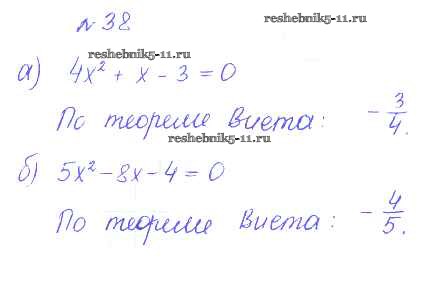 №38
reshebnik5-11.ru
reshebnik5-11.ru
а) 4x² + x - 3 = 0
По теореме Виета: -3/4.
reshebnik5-11.ru
б) 5x² - 8x - 4 = 0
По теореме Виета: -4/5.